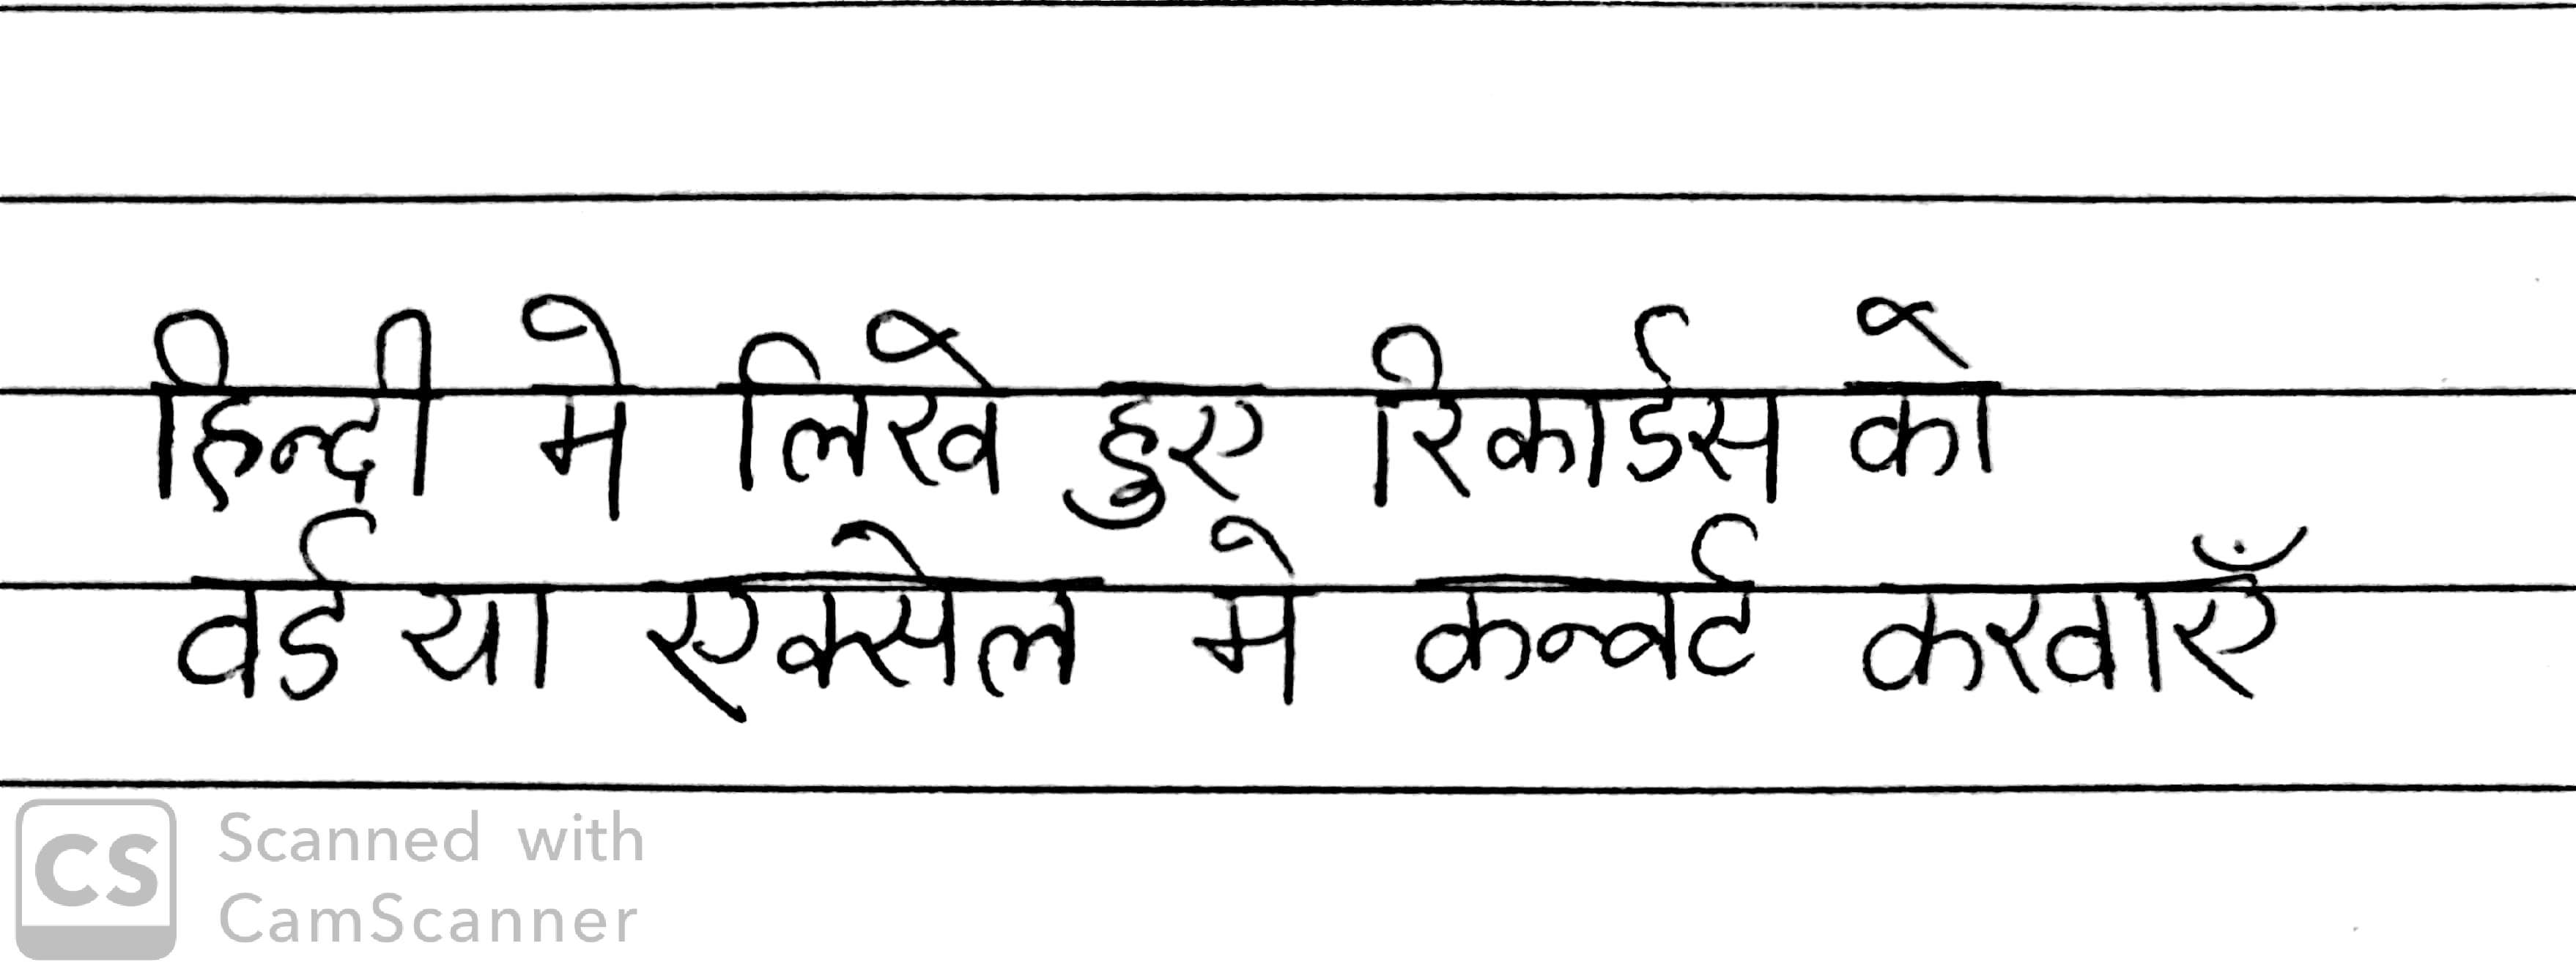 हिन्दी मे लिखे हुए रिकार्डस को
वर्ड या एक्सेल मे कन्वर्ट करवाएँ
CS Scanned with
CamScanner